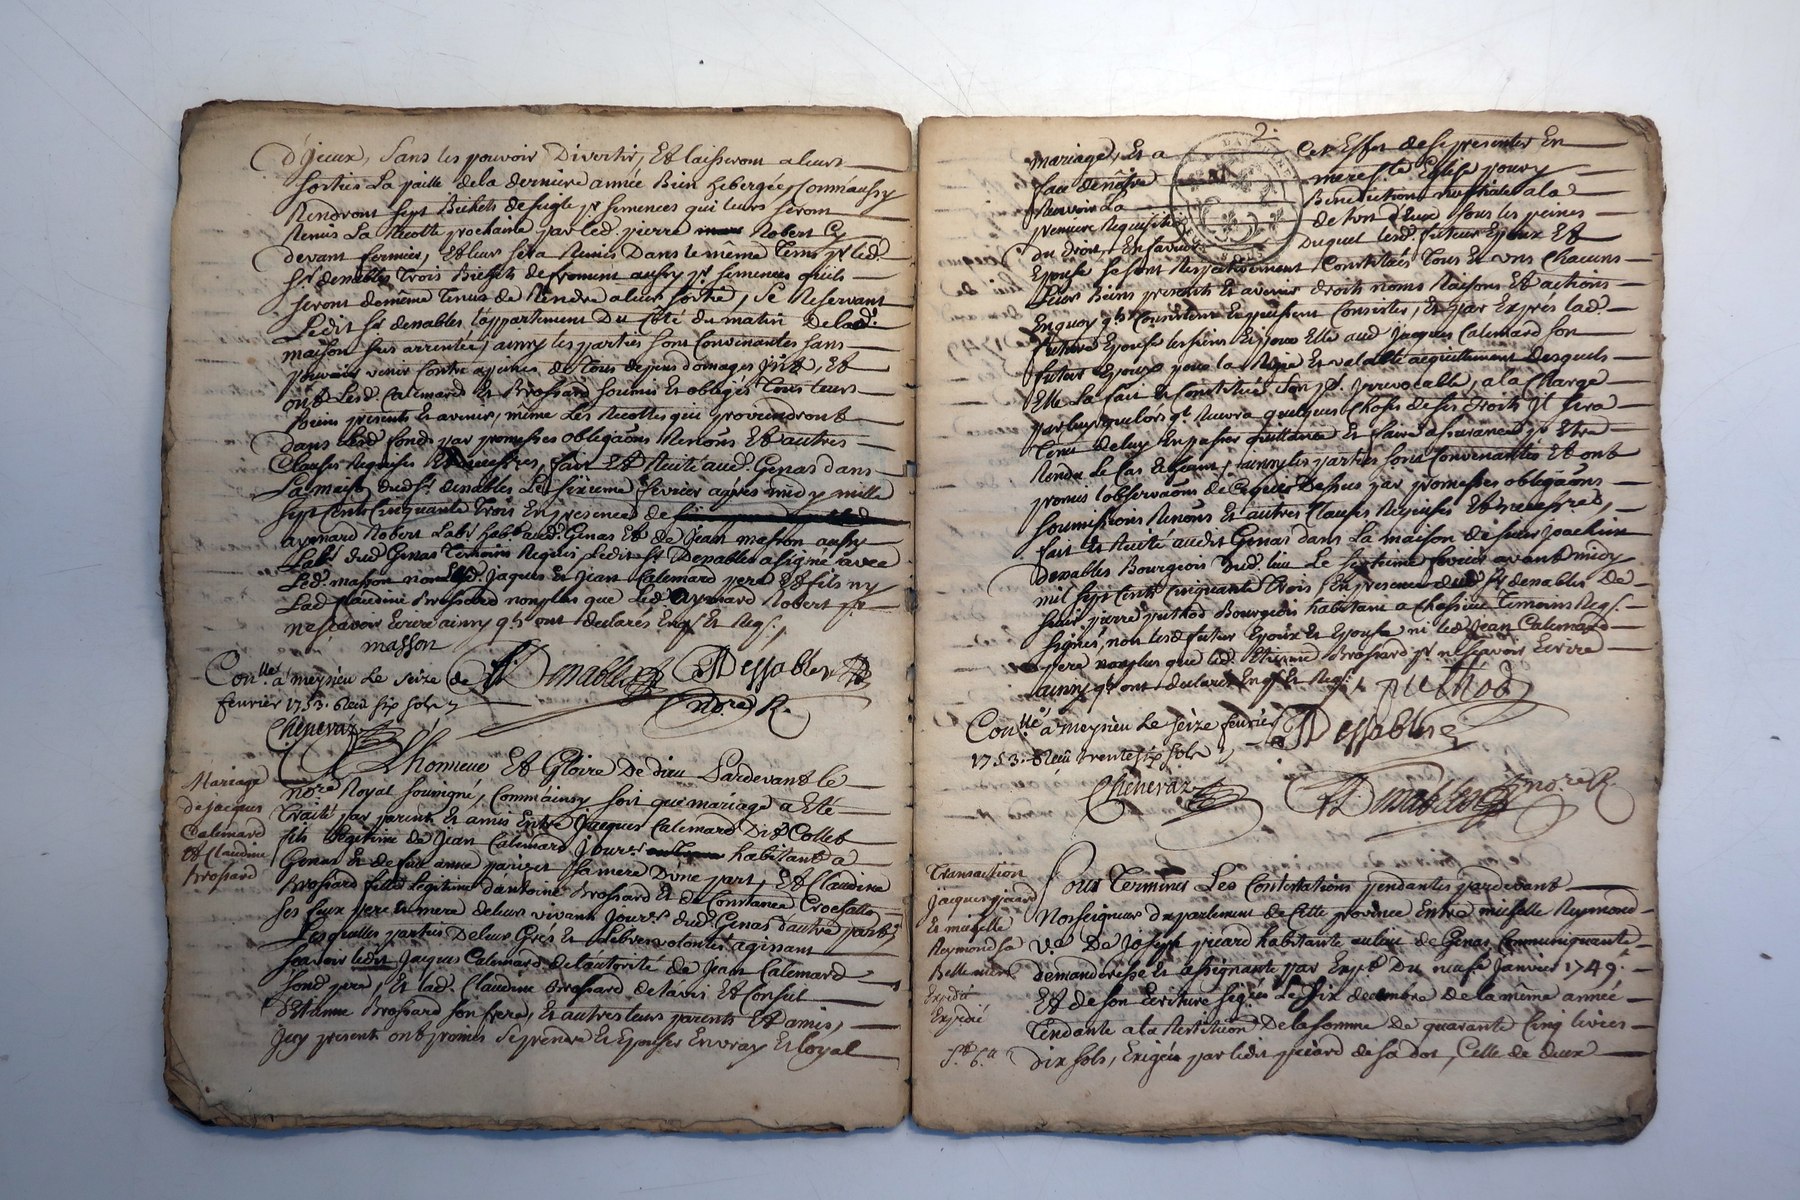 d'jceux, sans les pouvoir Divertir, Et laisseront a leurs
sorties La paille de la derniere année Bien hebergée, Comm'aussy
Rendront sept Bichets de seigle pr semences qui leurs seront
Remis La Recolte prochaine par led. pierre Robert Cy
devant fermier, Et leur sera Remis Dans le même Tems pr led.
sr. denables Trois Bichets de froment aussy pr semences quils
seront de même Tenus de Rendre a leur sortie, se Reservant
Ledit sr denables L'appartement Du Côté du matin De lad.
maison sus arrentée, ainsy les parties sont Convenantes sans
pouvoir venir Contre a peines de Tous depens domages jnts, Et
ont Lesd. Calemard Et Brossard soumis Et obligés Tous leurs
Biens presents Et avenir, même Les Recoltes qui proviendront
dans Lesd fonds par promesses obligaôns Renôns Et autres
Clauses Requises Et necessres, fait Et Recité aud. Genas dans
La maison dud sr. denables Le sixieme fevrier après midy mille
sept Cents Cinquante Trois En presence de
aymard Robert Labr habt. aud. Genas Et de Jean masson aussy
Labr. dud Genas Temoins Requis Ledit sr Denables a signé avec
Led. masson non Lesd. Jaques Et Jean Calemard pere Et fils ny
Lad Claudine Brossard nonplus que Led aymard Robert pr
ne sçavoir Ecrire ainsy qls ont declarés Enqs Et Reqs.
masson
Conllé. a meyzieu Le seize de Denables Dessables
fevrier 1753. Reçu six sols nore R.
Cheneraz
A Lhonneur Et Gloire De dieu Pardevant le
Mariage
de jacques
Calemard
Et Claudine
Brossard
nore Royal soussigné, Comm'ainsy soit que mariage a Eté
Traité par parents Et amis Entre Jacques Calemard Dit Collet
fils Legitime de Jean Calemard Jourr habitant a
Genas Et de feue anne pariset sa mere D'une part, Et Claudine
Brossard fille Legitime d'antoine Brossard Et de Constance
ses feux pere Et mere de leur vivant Jourrs. dud. Genas d'autre part
Lesquelles parties De leur Grés Et Libres volontés agissant
sçavoir Ledit Jacques Calemard de l'autorité de Jean Calemard
sond. pere, Et lad. Claudine Brossard de l'avis Et Conseil
d'Etienne Brossard son frere, Et autres leurs parents Et amis,
Jcy presents ont promis se prendre Et Epouser En vray Et loyal
2.
mariage, Et a Cet Effet de se presenter En
face de nôtre mere ste Eglise pour y
Recevoir La Benediction nuptiale a la
premiere Requisition de l'un d'Eux sous les peines
du droit, En faveur Duquel lesd. futurs Epoux Et
Epouse se sont Respectivement Constitués Tous Et uns Chacuns
Leurs Biens presents Et avenir droits noms Raisons Et actions
En quoy qls Consistent Et puissent Consister, Et par Exprés lad.
future Epouse les siens Et pour Elle aud Jacques Calemard son
futur Epoux pour la Regie Et valable acquitement desquels
Elle La fait Et Constitué son pr. Irrevocable, a la Charge
par luy que lors ql. Recevra quelques Choses de ses droits Jl sera
Tenu de luy En passer quittance Et faire assurance pr Etre
Rendu le Cas Echeant, ainsy les parties sont Convenantes Et ont
promis l'observaôns de Ce que Dessus par promesses obligaôns
soumissions Renôns Et autres Clauses Requises Et necessres,
fait Et Recité audit Genas dans La maison de sieur Joachim
denables Bourgeois dud. lieu Le septieme fevrier avant midy
mil sept Cents Cinquante Trois En presence dud sr denables De
sieur pierre puthod Bourgeois habitant a Chassieu Temoins Reqs.
signés, non lesd futur Epoux Et Epouse ni led Jean Calemard
pere nonplus que led. Etienne Brossard pr ne sçavoir Ecrire
ainsy qls ont declarés Enqs Et Reqs. puthod
Conllé a meyzieu Le seize fevrier Dessables
1753. Reçu trente six sols
Cheneraz Denables nore R.
Transaction
jacques picard
Et michelle
Reymond sa
Belle mere
Expedié
Expedié
Pour Terminer Les Contestations pendantes pardevant
Nosseigneurs du parlement de Cette province Entre michelle Reymond
ve De Joseph picard habitante au lieu de Genas Communiquante
demanderesse Et assignante par Expt. Du neuf Janvier 1749.
Et de son Ecriture Le six decembre de la même année
Tendante a la Restitution De la somme De quarante Cinq livres
Dix sols, Exigée par ledit picard de sa dot, Celle de deux